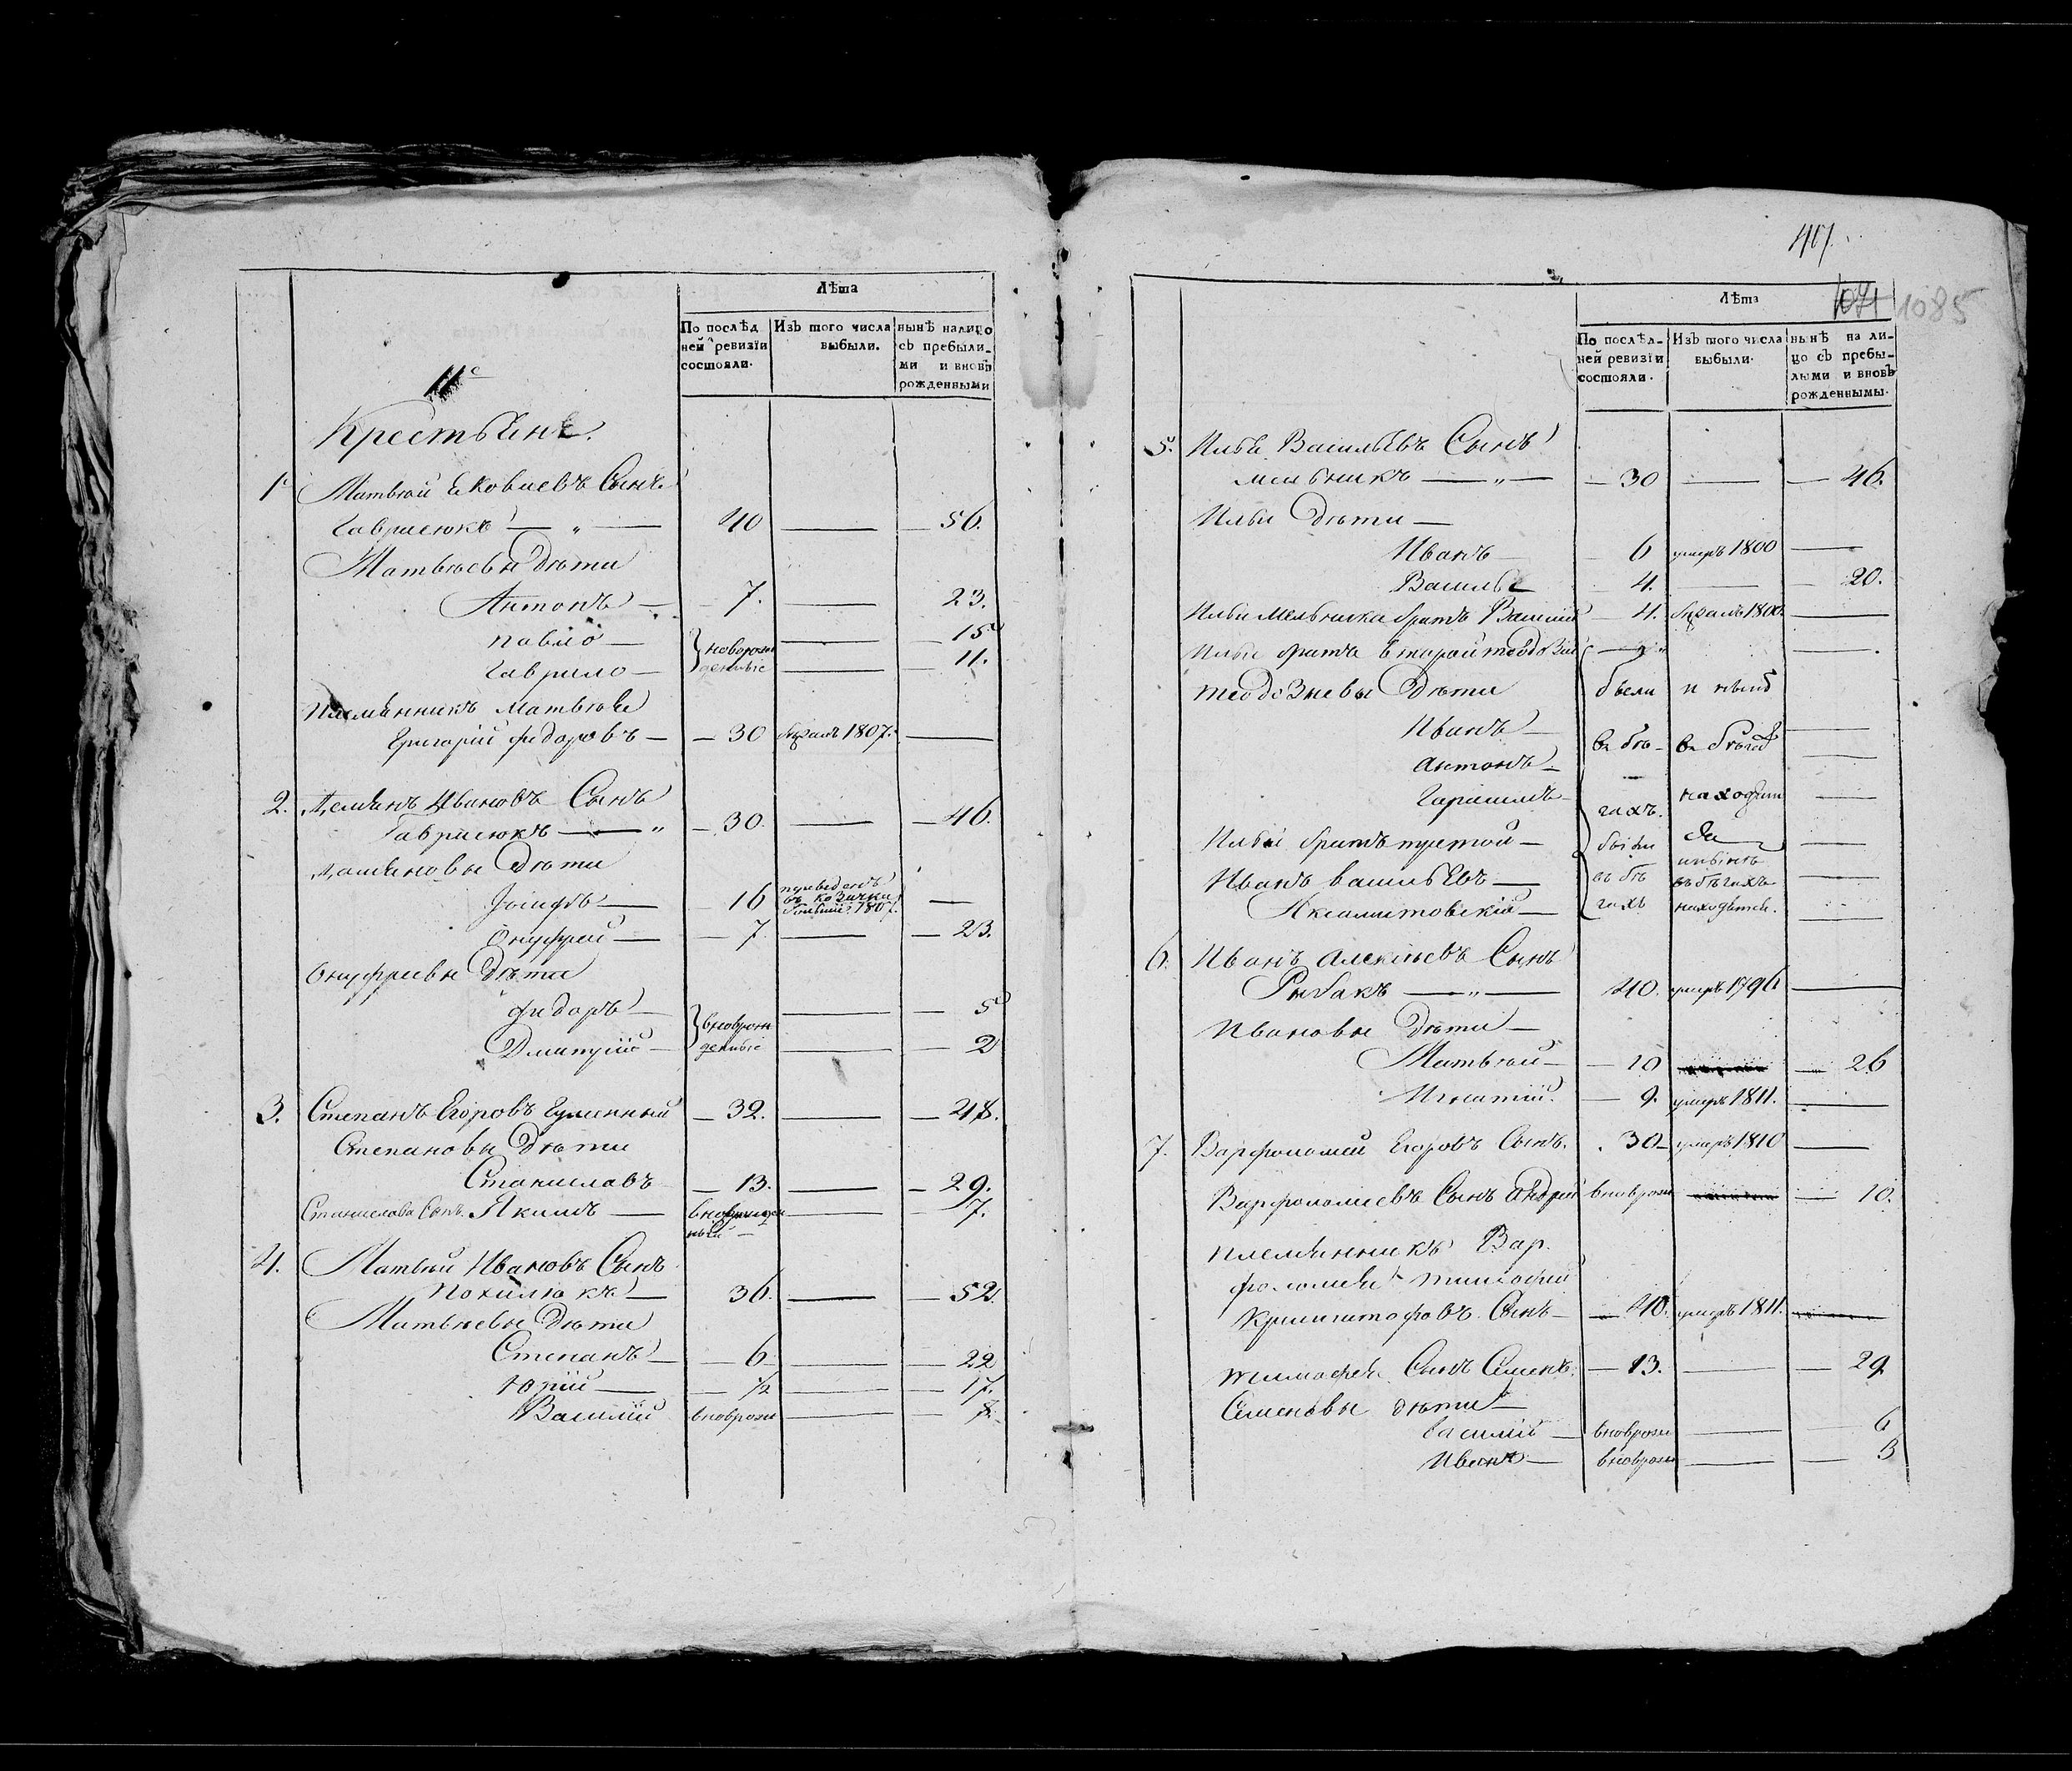 Лѣта
По послѣд
ней ревизїи
состояли.
Изъ того числа
выбыли.
нынѣ налицо
съ пребыли-
ми и вновь
рожденными
11е
Крестьяне.
1. Матвѣй Яковлевъ Сынъ
Гаврилюкъ — „ — 40 — 56.
Матвѣевы Дѣти
Антонъ — 7. — 23.
павло — новорож — 15
Гаврило — денные — 11.
племянникъ Матвѣя
Григорій федоровъ — 30 1807. —
2. Демянъ Ивановъ Сынъ
Гаврилюкъ — „ — 30. — 46.
Демяновы Дѣти
Іосифъ — 16 переведенъ въ 1807. —
Онуфрей — 7 — 23.
Онуфріевы Дѣти
федоръ — вноврож — 5
Дмитрій — денные — 2
3. Степанъ Егоровъ — 32. — 48.
Степановы Дѣти
Станиславъ — 13. — 29.
Станислава Сынъ Якимъ — 7.
4. Матвѣй Ивановъ Сынъ
Похилюкъ — 36. — 52.
Матвѣевы Дѣти
Степанъ — 6 — 22
Юрій — 1/2 — 17.
Василій вноврож — 8.
407.
1085
Лѣта
По послѣд-
ней ревизїи
состояли.
Изъ того числа
выбыли.
нынѣ на ли-
цо съ пребы-
лыми и вновь
рожденными.
5. Илья Васильевъ Сынъ
мельникъ — „ — 30 — 46.
Ильи Дѣти —
Иванъ — 6 умеръ 1800 —
Василь — 4. — 20.
Ильи Мельника братъ Василий — 4. —
Ильи братъ второй
Дѣти были и нынѣ
Иванъ — въ бѣ- въ бѣгахъ —
Антонъ — —
Герасимъ — гахъ. находит —
Ильи братъ третой — были ся —
Иванъ васильевъ — въ бѣ нынѣ въ бѣгахъ —
Аксамитовскій — гахъ находится. —
6. Иванъ Алексѣевъ Сынъ
Рыбакъ — „ — 40. умеръ 1796 —
Ивановы Дѣти —
Матвѣй — 10 — 26
Игнатій. — 9. умеръ 1811. —
7. Варфоломей Егоровъ Сынъ. 30 — умеръ 1810 —
Варфоломѣевъ Сынъ Андрей вноврож — 10.
племянникъ Вар.
фоломея тимофей
Криштофовъ Сынъ — 40. умеръ 1811. —
тимофея Сынъ Семенъ. — 13. — 29
Семеновы дѣти —
василій — вноврож — 6
Иванъ — вноврож — 3